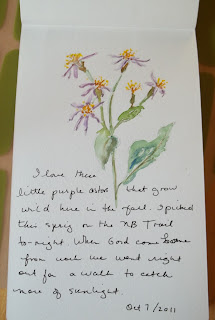 I love these
little purple asters that grow
wild here in the fall. I picked
this sprig on the NB Trail
to-night. When Gord came home
from work we went right
out for a walk to catch
more of sunlight.
Oct 7/2011